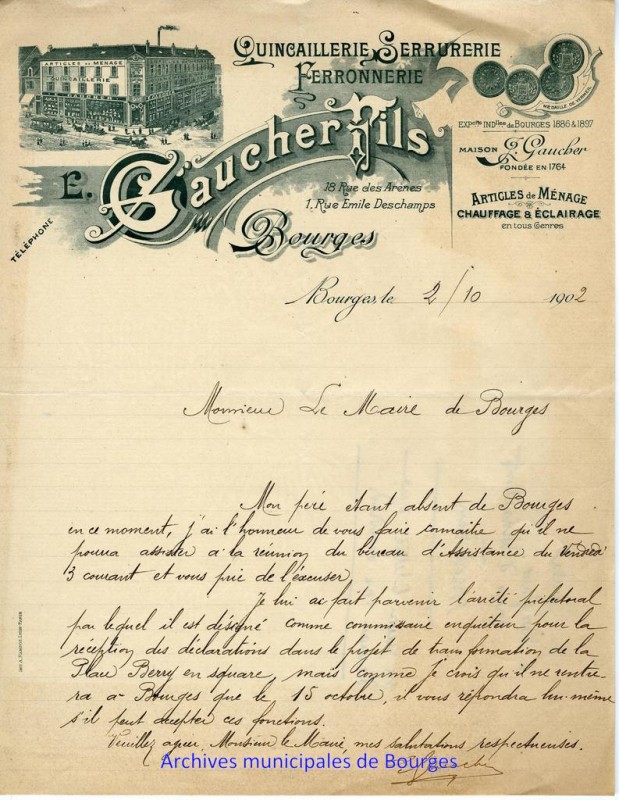 ARTICLES DE MÉNAGE
QUINCAILLERIE
QUINCAILLERIE, SERRURERIE
FERRONNERIE
E. Gaucher Fils
18 Rue des Arènes
1, Rue Emile Deschamps
Bourges
TÉLÉPHONE
MÉDAILLE DE VERMEIL
EXP.ons IND.lles de BOURGES 1886 & 1897
MAISON Gaucher
FONDÉE EN 1764
ARTICLES de MÉNAGE
CHAUFFAGE & ÉCLAIRAGE
en tous Genres
Bourges, le 2/10 1902
Monsieur Le Maire de Bourges
Mon père étant absent de Bourges
en ce moment, j'ai l'honneur de vous faire connaître qu'il ne
pourra assister à la réunion du bureau d'Assistance du Vendredi
3 courant et vous prie de l'excuser.
Je lui ai fait parvenir l'arrêté préfectoral
par lequel il est désigné comme commissaire enquêteur pour la
réception des déclarations dans le projet de transformation de la
Place Berry en square, mais comme je crois qu'il ne rentre-
ra à Bourges que le 15 octobre, il vous répondra lui-même
s'il peut accepter ces fonctions.
Veuillez agréer, Monsieur le Maire, mes salutations respectueuses.
Archives municipales de Bourges